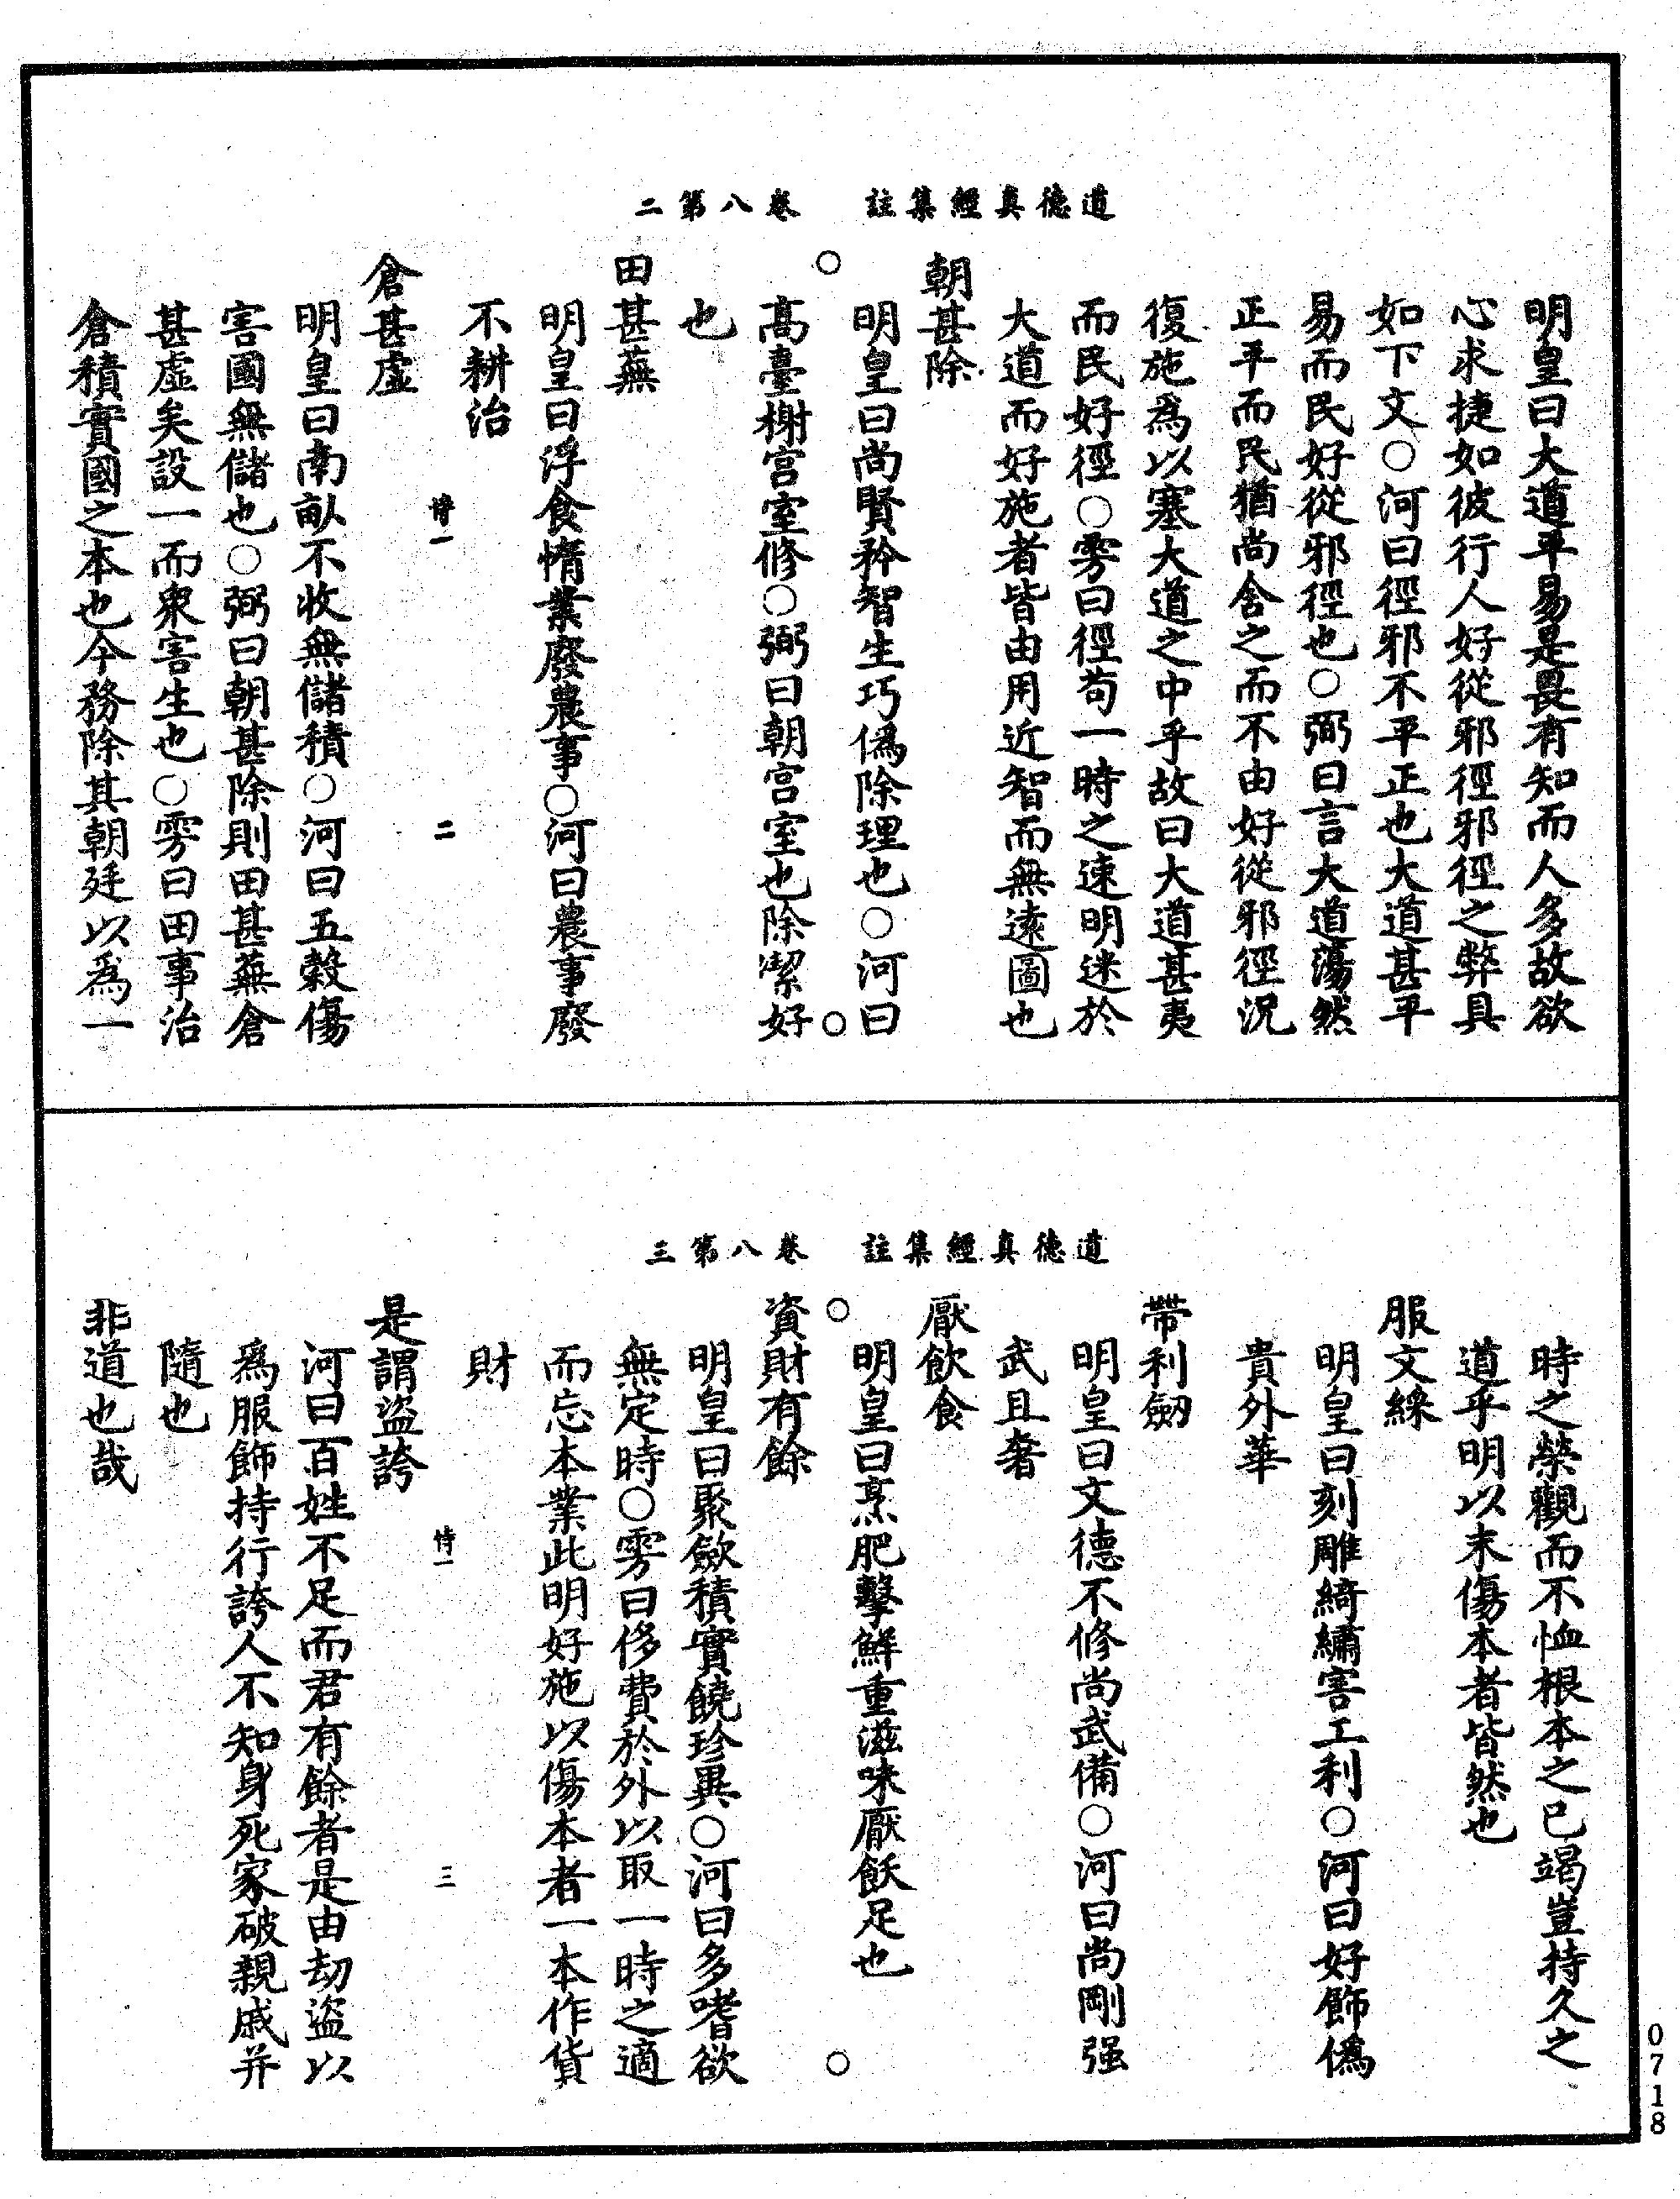 道德真經集註　卷八第二
明皇曰大道平易是畏有知而人多故欲
心求捷如彼行人好從邪徑邪徑之弊具
如下文○河曰徑邪不平正也大道甚平
易而民好從邪徑也○弼曰言大道蕩然
正平而民猶尚舍之而不由好從邪徑況
復施爲以塞大道之中乎故曰大道甚夷
而民好徑○雱曰徑苟一時之速明迷於
大道而好施者皆由用近智而無遠圖也
朝甚除
明皇曰尚賢矜智生巧僞除理也○河曰
高臺榭宮室修○弼曰朝宮室也除潔好
也
田甚蕪
明皇曰浮食惰業廢農事○河曰農事廢
不耕治
倉甚虛
明皇曰南畝不收無儲積○河曰五穀傷
害國無儲也○弼曰朝甚除則田甚蕪倉
甚虛矣設一而衆害生也○雱曰田事治
倉積實國之本也今務除其朝廷以爲一
恃一　二
道德真經集註　卷八第三
時之榮觀而不恤根本之已竭豈持久之
道乎明以末傷本者皆然也
服文綵
明皇曰刻雕綺繡害工利○河曰好飾僞
貴外華
帶利劒
明皇曰文德不修尚武備○河曰尚剛强
武且奢
厭飲食
明皇曰烹肥擊鮮重滋味厭飫足也
資財有餘
明皇曰聚歛積實饒珍異○河曰多嗜欲
無定時○雱曰侈費於外以取一時之適
而忘本業此明好施以傷本者一本作貨
財
是謂盜誇
河曰百姓不足而君有餘者是由劫盜以
爲服飾持行誇人不知身死家破親戚并
隨也
非道也哉
恃一　三
0718